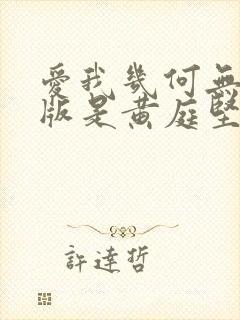 愛我幾何無
版是黄庭堅
許達哲